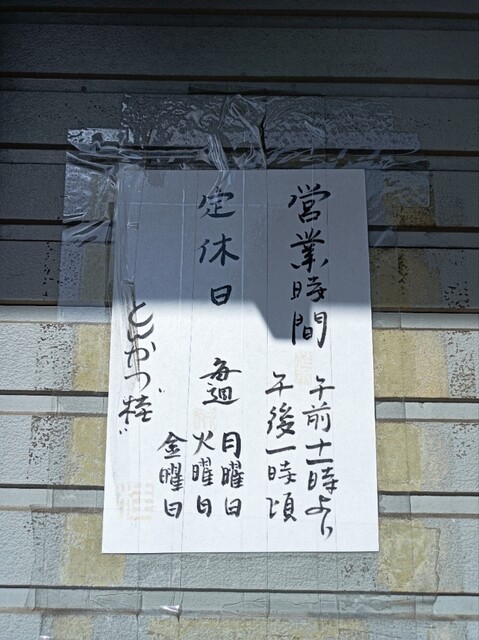 営業時間
午前十一時より
午後一時頃
定休日
毎週
月曜日
火曜日
金曜日
とんかつ桂